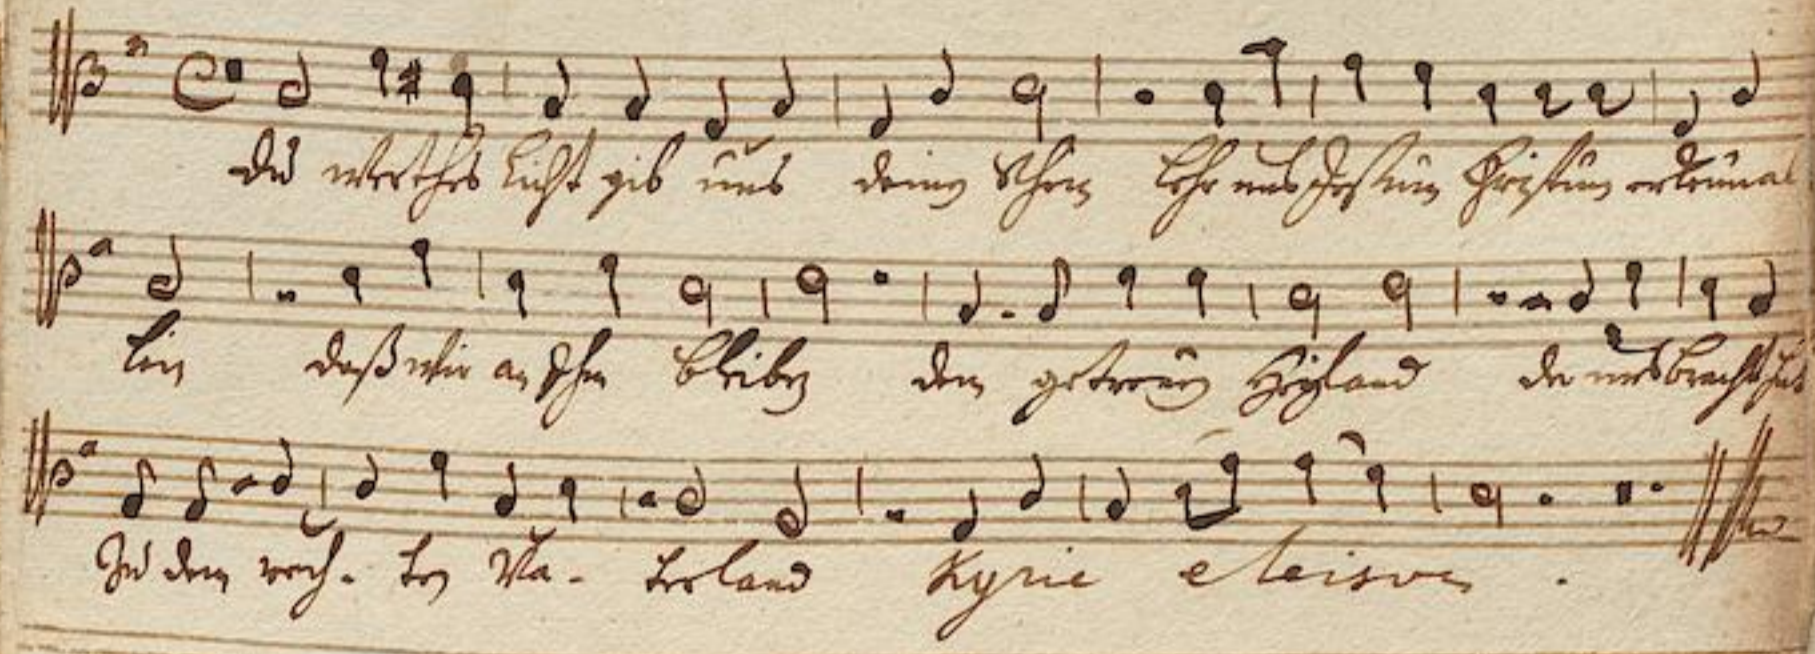 Du werthes Licht gib uns deinen Schein Lehr uns Jesum Christum erkennen al
lein daß wir an Ihm bleiben dem getreuen Heyland der uns bracht hat
Zu dem rech- ten Va- terland Kyrie eleison.